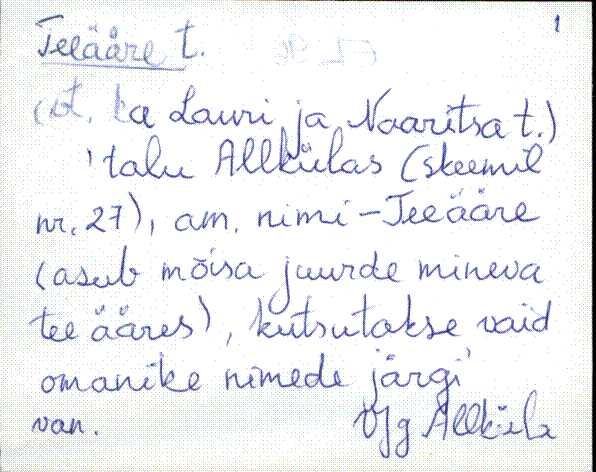 1
Teeääre t.
(vt. ka Lauri ja Naaritsa t.)
'talu Allkülas (skeemil
nr. 27), am. nimi - Teeääre
(asub mõisa juurde mineva
tee ääres), kutsutakse vaid
omanike nimede järgi'
van. VJg Allküla